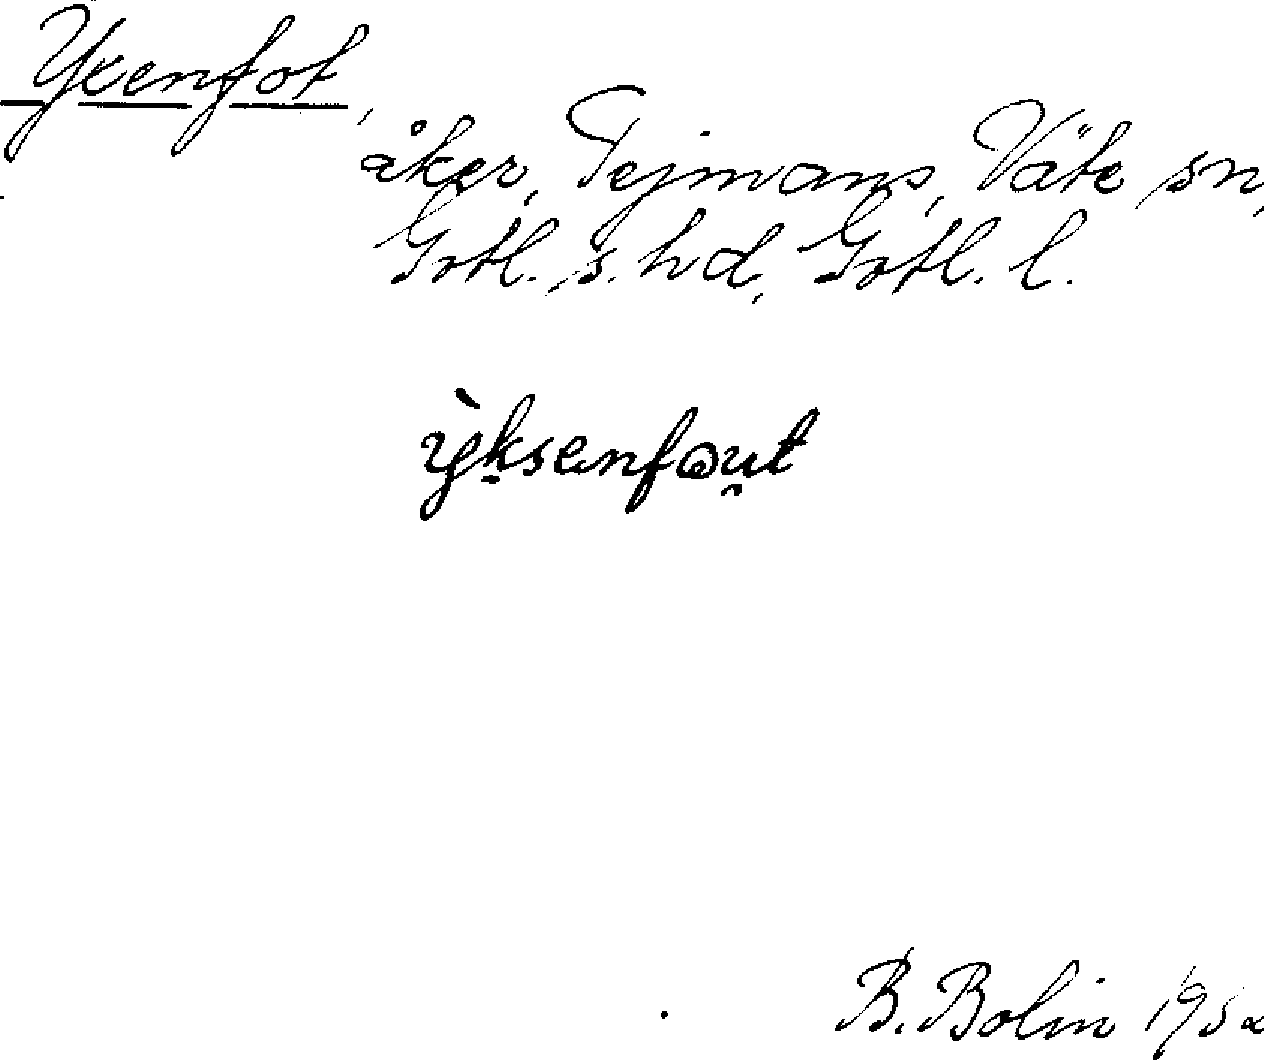 Yxenfot,
åker, Tejmans, Väte sn,
Gotl. s. hd, Gotl. l.
ỳksenfωu̯t
B. Bolin 1952